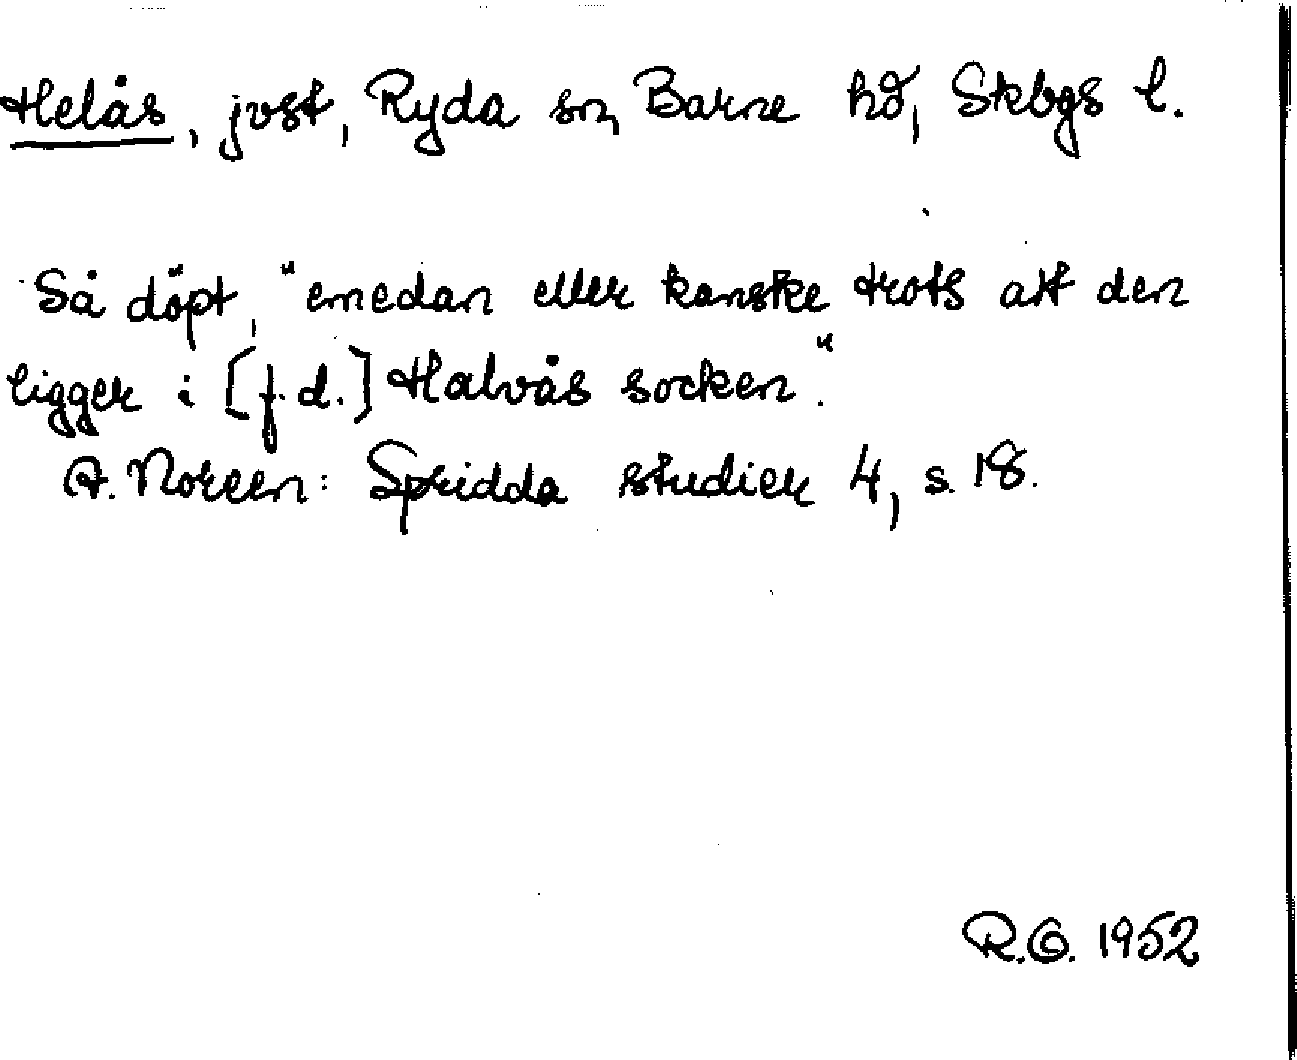 Helås, jvst, Ryda sn, Barne hd, Skbgs l.
Så döpt, "emedan eller kanske trots att den
ligger i [f.d.] Halvås socken."
A. Noreen: Spridda studier 4, s. 18.
R.G. 1952